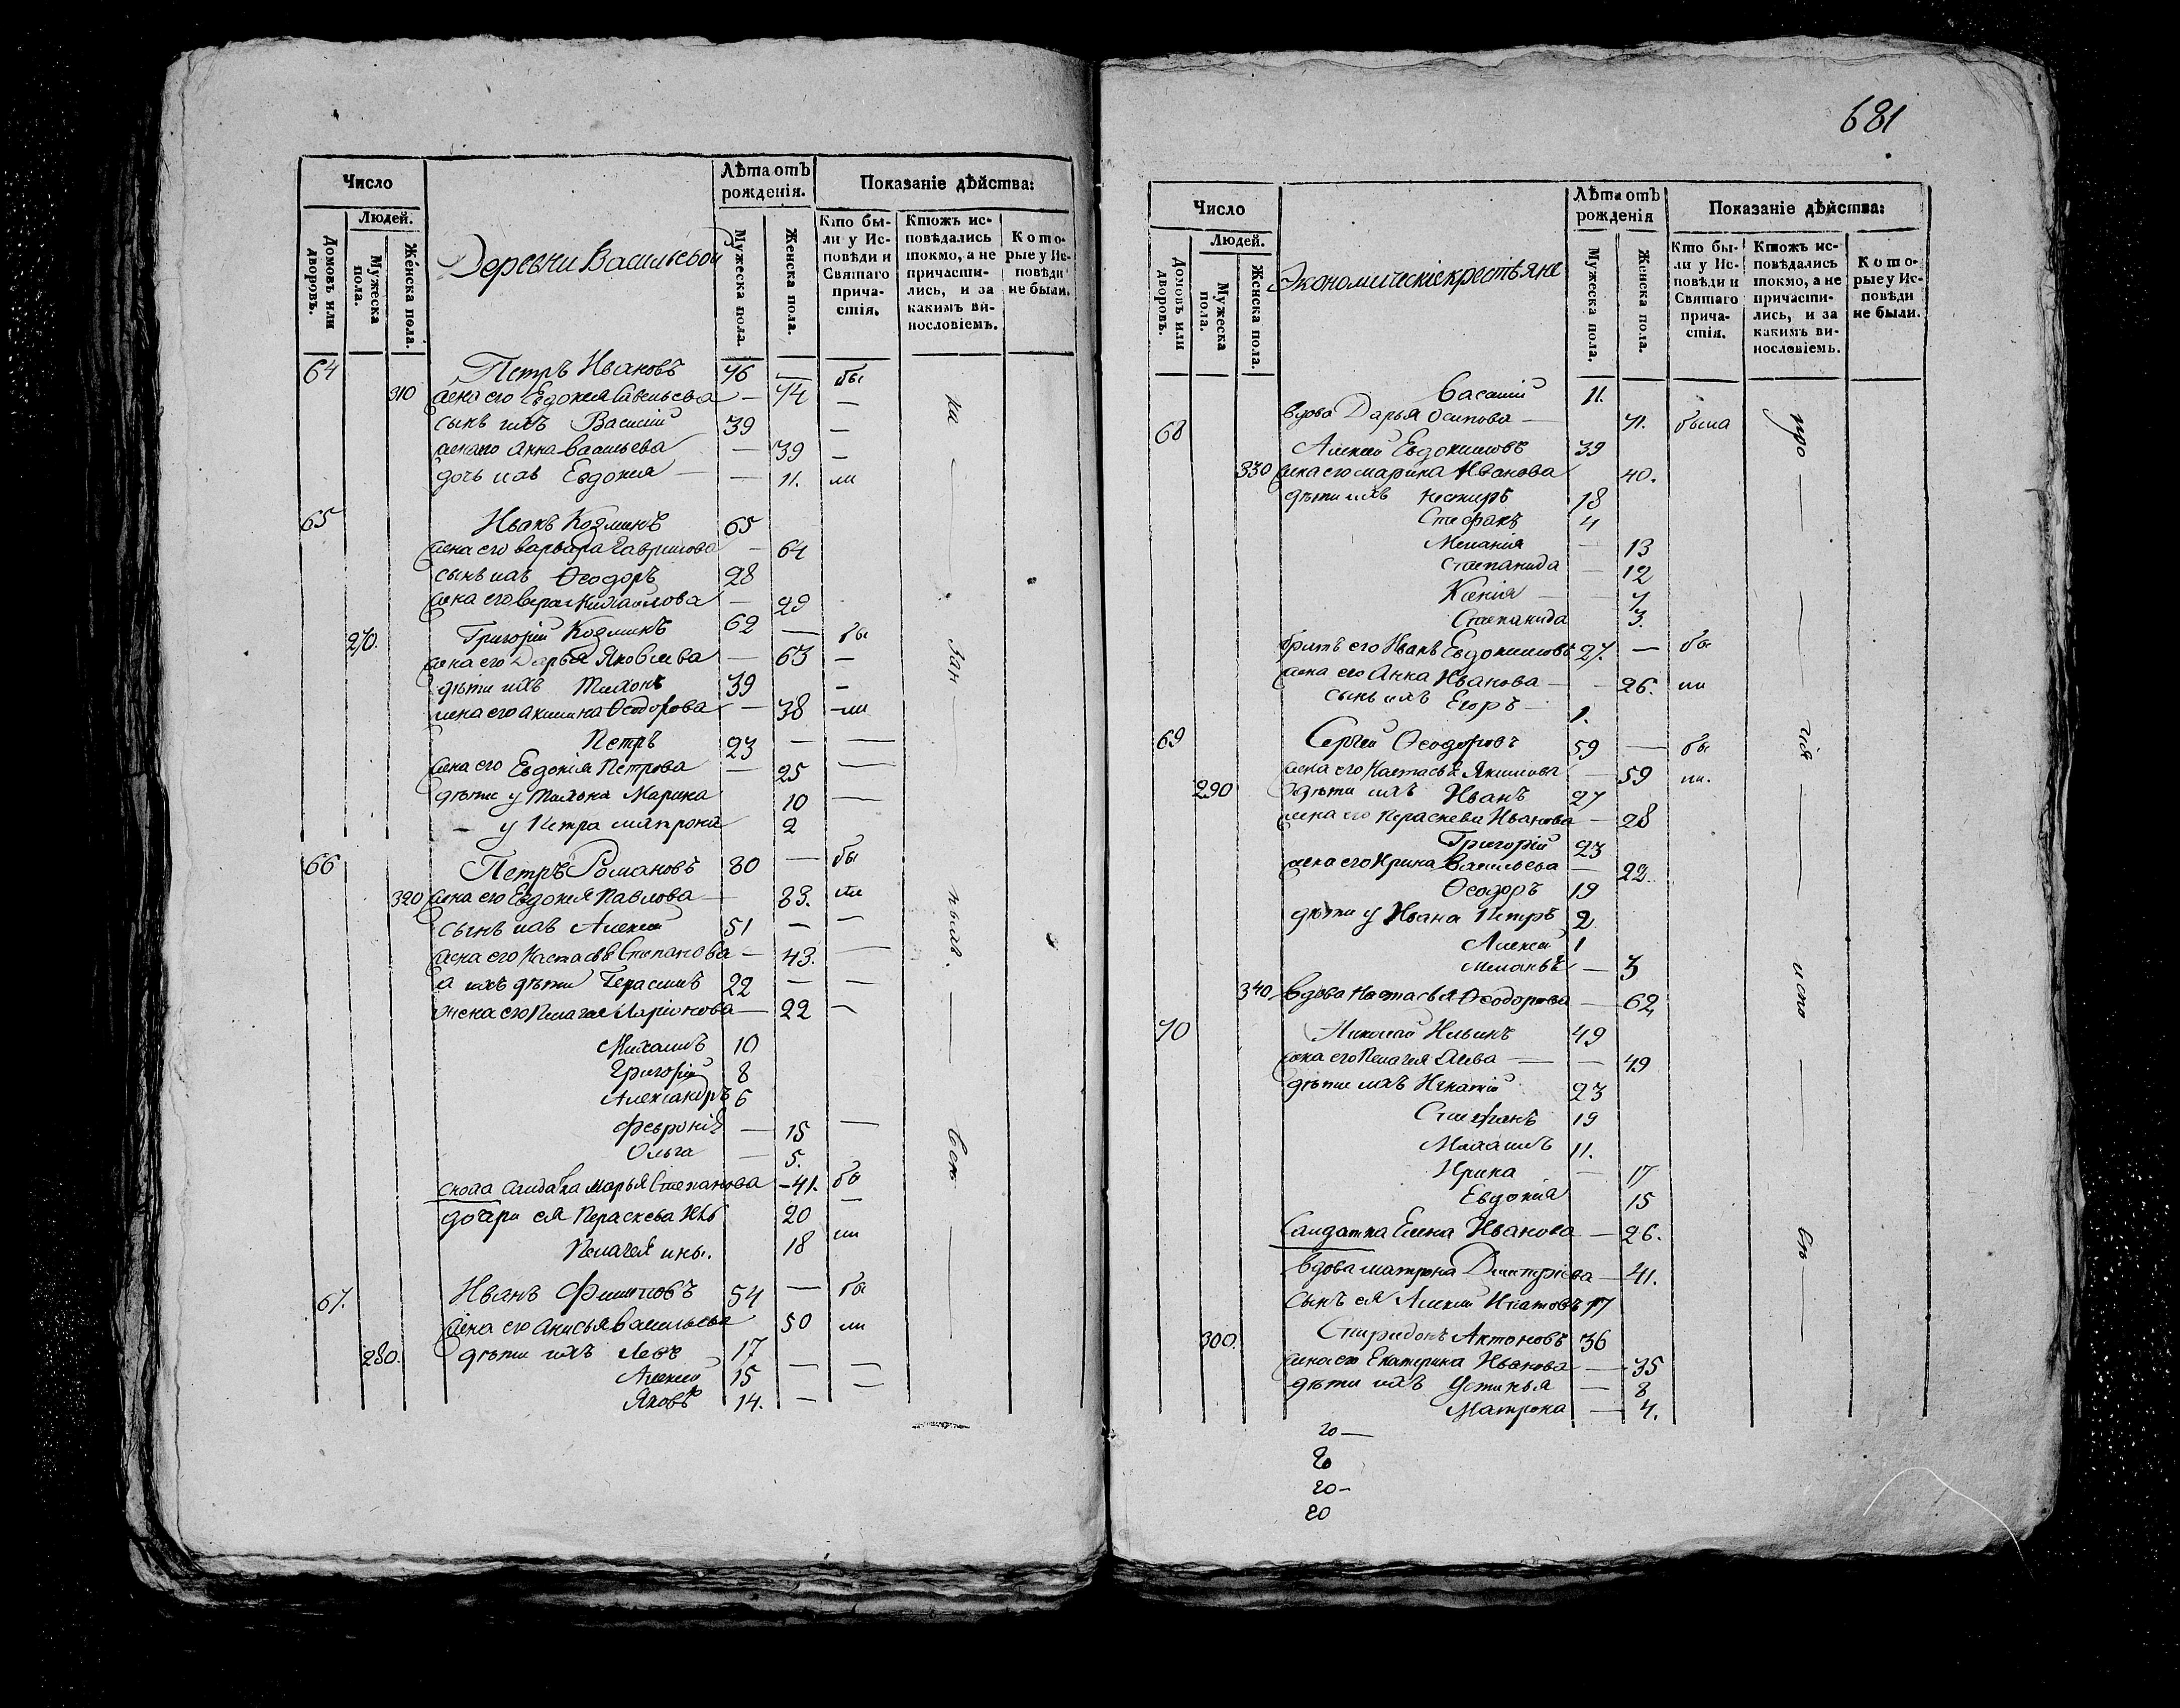 Число
Людей.
Домовъ или дворовъ.
Мужеска пола.
Женска пола.
Деревни Васильевой
Лѣта отъ рожденія.
Мужеска пола.
Женска пола.
Показаніе дѣйства:
Кто были у Исповѣди и Святаго причастія.
Ктожъ исповѣдались токмо, а не причастились, и за какимъ винословіемъ.
Которые у Исповѣди не были.
64 Петръ Ивановъ 76 — бы
310 жена его Евдокея Савельева — 74 —
сынъ ихъ Василий 39 —
жена его Анна Васильева — 39 —
дочь ихъ Евдокея — 11. ли
65 Иванъ Козминъ 65
жена его варвара Гаврилова — 64
сынъ ихъ Ѳеодоръ 28
жена его вера — 29
270. Григорій Козминъ 62 — бы
жена его Дарья Яковлева — 63 —
дѣти ихъ Тихонъ 39 —
жена его акилина Ѳеодорова — 38 — ли
Петръ 23 — —
жена его Евдокія Петрова — 25 —
дѣти у Тихона Марина 10 —
— у Петра матрона 2
66 Петръ Романовъ 80 — бы
320 жена его Евдокея Павлова — 83. ли
сынъ ихъ Алексей 51 —
жена его Настасья Степанова — 43. —
а ихъ дѣти Герасимъ 22 — —
жена его Пелагея Ларіонова — 22 —
Михаилъ 10
Григорій 8
Александръ 6
Феврония — 15 —
Ольга — 5.
салдатка Марья Степанова — 41. бы
дочери ея Параскева 20 —
Пелагея 18 ли
67. Иванъ Филиповъ 54 — бы
жена его Анисья васильева 50 ли
280. дѣти ихъ Левъ 17
Алексей 15 — —
Яковъ 14. — —
на — зан — — — всѣ —
681
Число
Людей.
Домовъ или дворовъ.
Мужеска пола.
Женска пола.
Экономическіе крестьяне
Лѣта отъ рожденія
Мужеска пола.
Женска пола.
Показаніе дѣйства:
Кто были у Исповѣди и Святаго причастія.
Ктожъ исповѣдались токмо, а не причастились, и за какимъ винословіемъ.
Которые у Исповѣди не были.
Василий 11.
68 вдова Дарья Осипова — 71. была
Алексей Евдокимовъ 39
330 жена его марина Иванова 40.
дѣти ихъ 18
Стефанъ 4
Мелания — 13
Степанида — 12
Ксения — 7
Степанида 3.
братъ его Иванъ Евдокимовъ 27. — бы
жена его Анна Иванова — — 26. ли
сынъ ихъ Егоръ — 1.
69 Сергей Ѳеодоровъ 59 — бы
жена его Настасья Якимова — 59 ли.
290 дѣти ихъ Иванъ 27
жена его Параскева Иванова — 28
Григорій 23
жена его Ирина Васильева — 22.
Ѳеодоръ 19
дѣти у Ивана Петръ 2
Алексей 1
Меланья — 3
340 вдова Настасья Ѳеодорова — 62
70 Николай Ильинъ 49
жена его Пелагея — — 49
дѣти ихъ Игнатій 23
Стефанъ 19
Михаилъ 11.
Ирина — 17
Евдокия 15
Салдатка Елена Иванова — 26.
вдова матрона Димитріева — 41.
сынъ ея Алексей Игнатовъ 17
300. Спиридонъ Антоновъ 36
жена его Екатерина Иванова — 35
дѣти ихъ Устинья — 8
Матрона — 4.
при — — чія — испо — — вѣ —
20 —
20
20 —
20